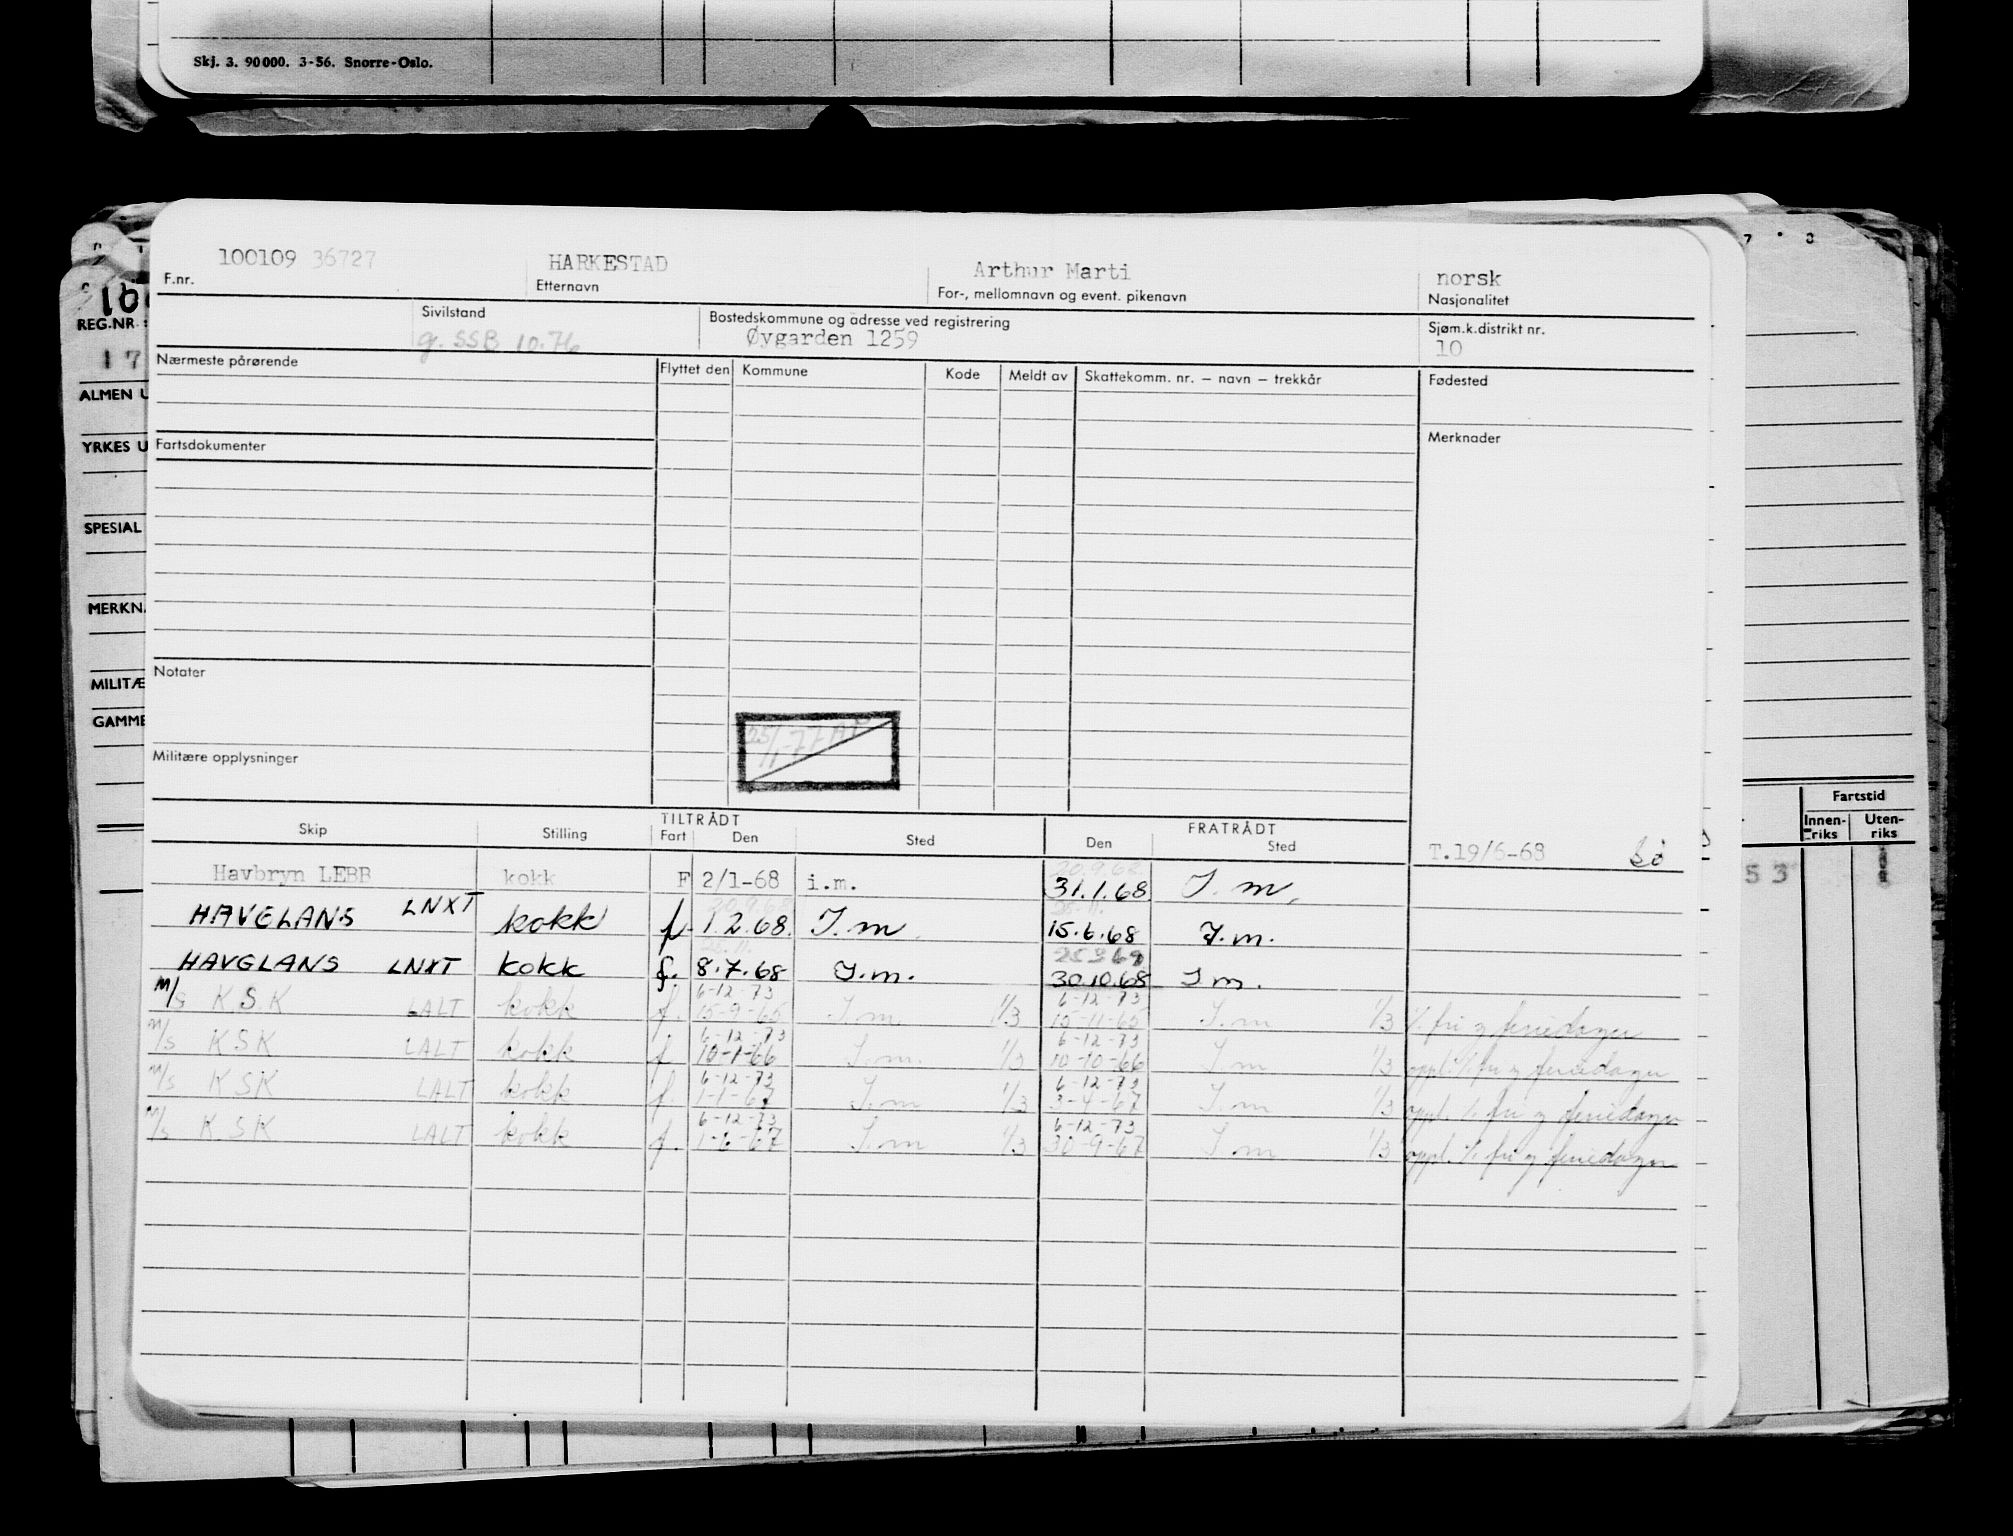 Skj. 3. 90000. 3-56. Snorre-Oslo.
100109 36727 HARKESTAD Arthur Marti norsk
F.nr. Etternavn For-, mellomnavn og event. pikenavn Nasjonalitet
Sivilstand Bostedskommune og adresse ved registrering Sjøm.k.distrikt nr.
g. SSB 10.76 Øygarden 1259 10
REG.NR.:
17
Nærmeste pårørende Flyttet den Kommune Kode Meldt av Skattekomm. nr. – navn – trekkår Fødested
ALMEN U
YRKES U Fartsdokumenter Merknader
SPESIAL
MERKN
Notater
MILITÆ
GAMME
25/11-77
Militære opplysninger
Fartstid
Innen-riks Uten-riks
53
Skip Stilling TILTRÅDT Fart Den Sted FRATRÅDT Den Sted
T.19/6-68
20.9.68
Havbryn LEBB kokk F 2/1-68 i.m. 31.1.68 I.m.
20.9.68 25.11.
HAVGLANS LNXT kokk f. 1.2.68. I.m. 15.6.68 I.m.
25.11. 25.3.69
HAVGLANS LNXT kokk f. 8.7.68 I.m. 30.10.68 I m.
6-12-73 6-12-73
M/s K.S.K LALT kokk f. 15-9-65 I.m. 1/3 15-11-65 I.m 1/3 % fri og feriedager
6-12-73 6-12-73
M/s KSK LALT kokk f 10-1-66 I.m. 1/3 10-10-66 I.m 1/3 oppl. % fri og feriedager
6-12-73 6-12-73
M/s KSK LALT kokk f. 1-1-67 I.m 1/3 3-4-67 I.m 1/3 oppl. % fri og feriedager
6-12-73 6-12-73
M/s KSK LALT kokk f. 1-6-67 I.m 1/3 30-9-67 I.m 1/3 oppl. % fri og feriedager